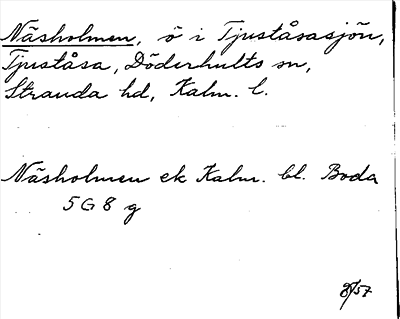 Näsholmen, ö i Tjuståsasjön,
Tjuståsa, Döderhults sn,
Stranda hd, Kalm. l.
Näsholmen ek Kalm. bl. Boda
5 G 8 g
8/57